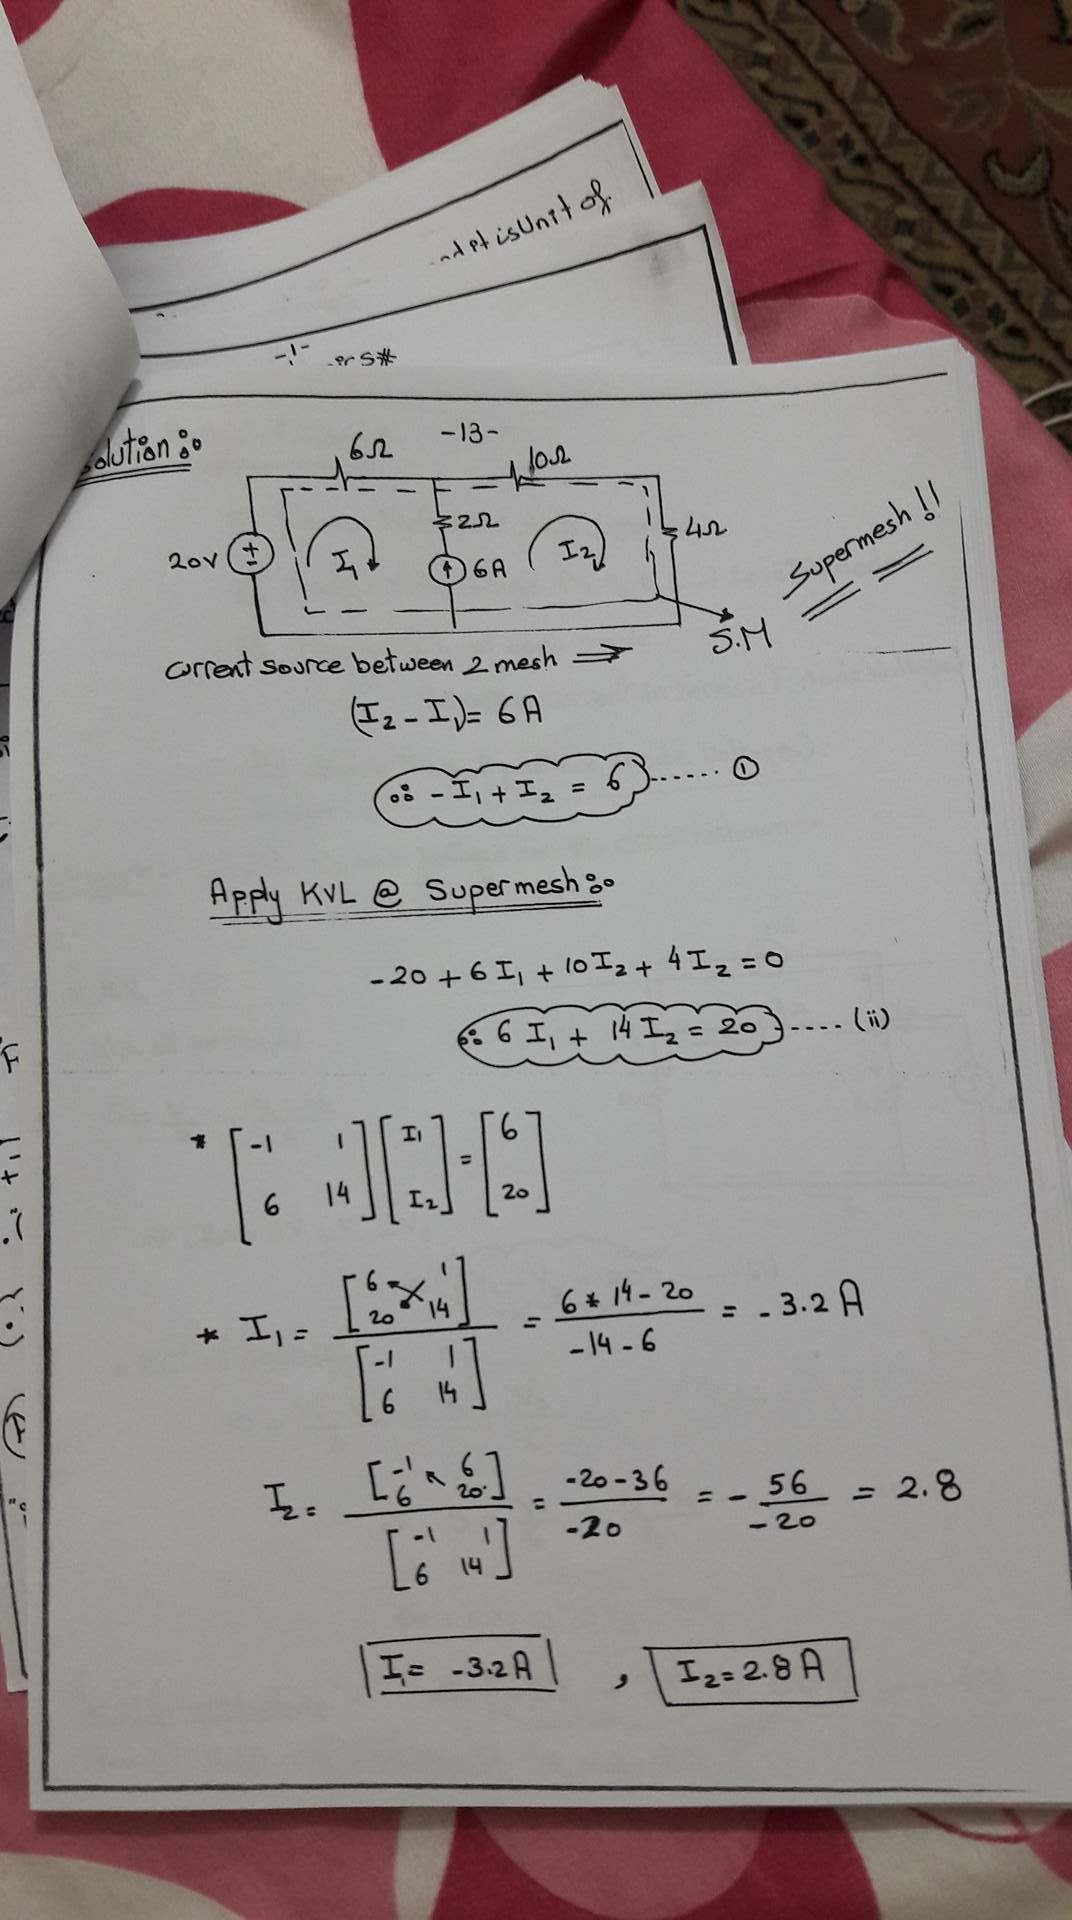 nd it is Unit of
ers#
-13-
Solution:
6Ω
10Ω
20V
I₁
2Ω
6A
I₂
4Ω
Supermesh!!
S.M
current source between 2 mesh ⇒
(I₂ - I₁) = 6A
∴ - I₁ + I₂ = 6 ...... ①
Apply KVL @ Supermesh:
-20 + 6I₁ + 10I₂ + 4I₂ = 0
∴ 6 I₁ + 14 I₂ = 20 .... (ii)
* [-1 1; 6 14] [I₁; I₂] = [6; 20]
* I₁ = [6 1; 20 14] / [-1 1; 6 14] = (6 * 14 - 20) / (-14 - 6) = -3.2 A
I₂ = [-1 6; 6 20] / [-1 1; 6 14] = (-20 - 36) / -20 = - 56 / -20 = 2.8
I₁ = -3.2A , I₂ = 2.8A